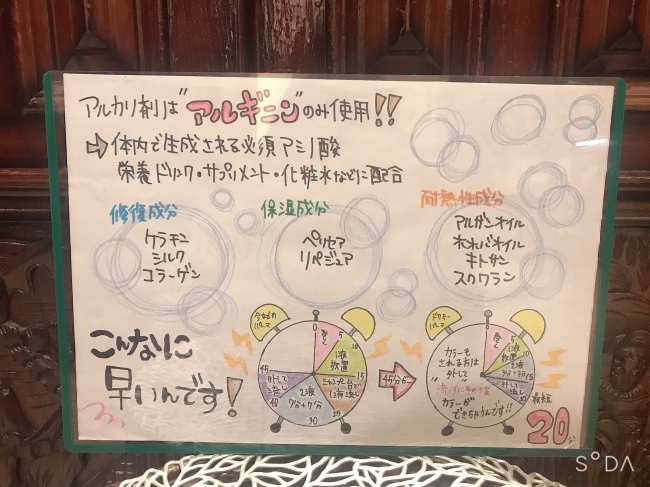 アルカリ剤は"アルギニン"のみ使用!!
⇨体内で生成される必須アミノ酸
栄養ドリンク・サプリメント・化粧水などに配合
修復成分
ケラチン
シルク
コラーゲン
保湿成分
ペリセア
リペジュア
耐熱性成分
アルガンオイル
ホホバオイル
キトサン
スクワラン
こんなに
早いんです!
今までの
パーマ
0
5
10
15
25
30
40
45
巻く
1液
放置
2液
7分+7分
外して
流し
45分が
パーマ
0
5
10
15
20
巻く
1液
放置
外して
流し
カラーも
される方は
外して
カラーが
できちゃうんです!!
20分
S°DA